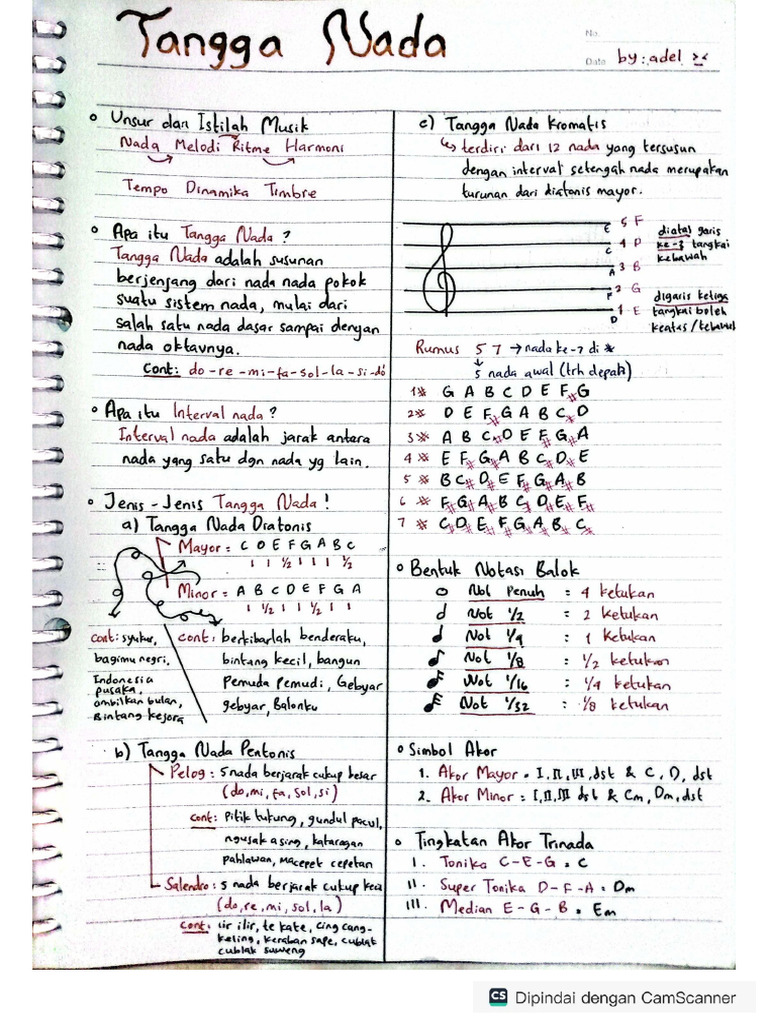 Tangga Nada
No.
Date by: adel ><
• Unsur dan Istilah Musik
Nada Melodi Ritme Harmoni
Tempo Dinamika Timbre
• Apa itu Tangga Nada?
Tangga Nada adalah susunan
berjenjang dari nada nada pokok
suatu sistem nada, mulai dari
salah satu nada dasar sampai dengan
nada oktavnya.
Cont: do-re-mi-fa-sol-la-si-dó
• Apa itu Interval nada?
Interval nada adalah jarak antara
nada yang satu dgn nada yg lain.
• Jenis-Jenis Tangga Nada!
a) Tangga Nada Diatonis
Mayor = C D E F G A B C
1 1 1/2 1 1 1 1/2
Minor = A B C D E F G A
1 1/2 1 1 1/2 1 1
Cont: syukur,
bagimu negri,
Indonesia
pusaka,
ambilkan bulan,
Bintang kejora
cont: berkibarlah benderaku,
bintang kecil, bangun
pemuda pemudi, Gebyar
gebyar, Balonku
b) Tangga Nada Pentonis
Pelog: 5 nada berjarak cukup besar
(do, mi, fa, sol, si)
cont: Pitik tukung, gundul pacul,
ngusak asing, kataragan
pahlawan, macepet cepetan
Salendro: 5 nada berjarak cukup kecil
(do, re, mi, sol, la)
Cont: lir ilir, te kate, cing cang-
keling, keraban sape, cublak
cublak suweng
c) Tangga Nada Kromatis
↳ terdiri dari 12 nada yang tersusun
dengan interval setengah nada merupakan
turunan dari diatonis mayor.
5 F
E
4 D
C
3 B
A
2 G
F
1 E
D
diatas garis
ke-3 tangkai
kebawah
digaris ketiga
tangkai boleh
keatas/kebawah
Rumus 5 7 → nada ke-7 di #
↓
5 nada awal (trh depak)
1# G A B C D E F# G
2# D E F# G A B C# D
3# A B C# D E F# G# A
4# E F# G# A B C# D# E
5# B C# D# E F# G# A# B
6# F# G# A# B C# D# E# F#
7# C# D# E# F# G# A# B# C#
• Bentuk Notasi Balok
Not Penuh = 4 ketukan
Not 1/2 = 2 ketukan
Not 1/4 = 1 Ketukan
Not 1/8 = 1/2 ketukan
Not 1/16 = 1/4 ketukan
Not 1/32 : 1/8 ketukan
• Simbol Akor
1. Akor Mayor = I, II, III, dst & C, D, dst
2. Akor Minor = I, II, III dst & Cm, Dm, dst
• Tingkatan Akor Trinada
I. Tonika C-E-G = C
II. Super Tonika D-F-A = Dm
III. Median E-G-B = Em
CS Dipindai dengan CamScanner